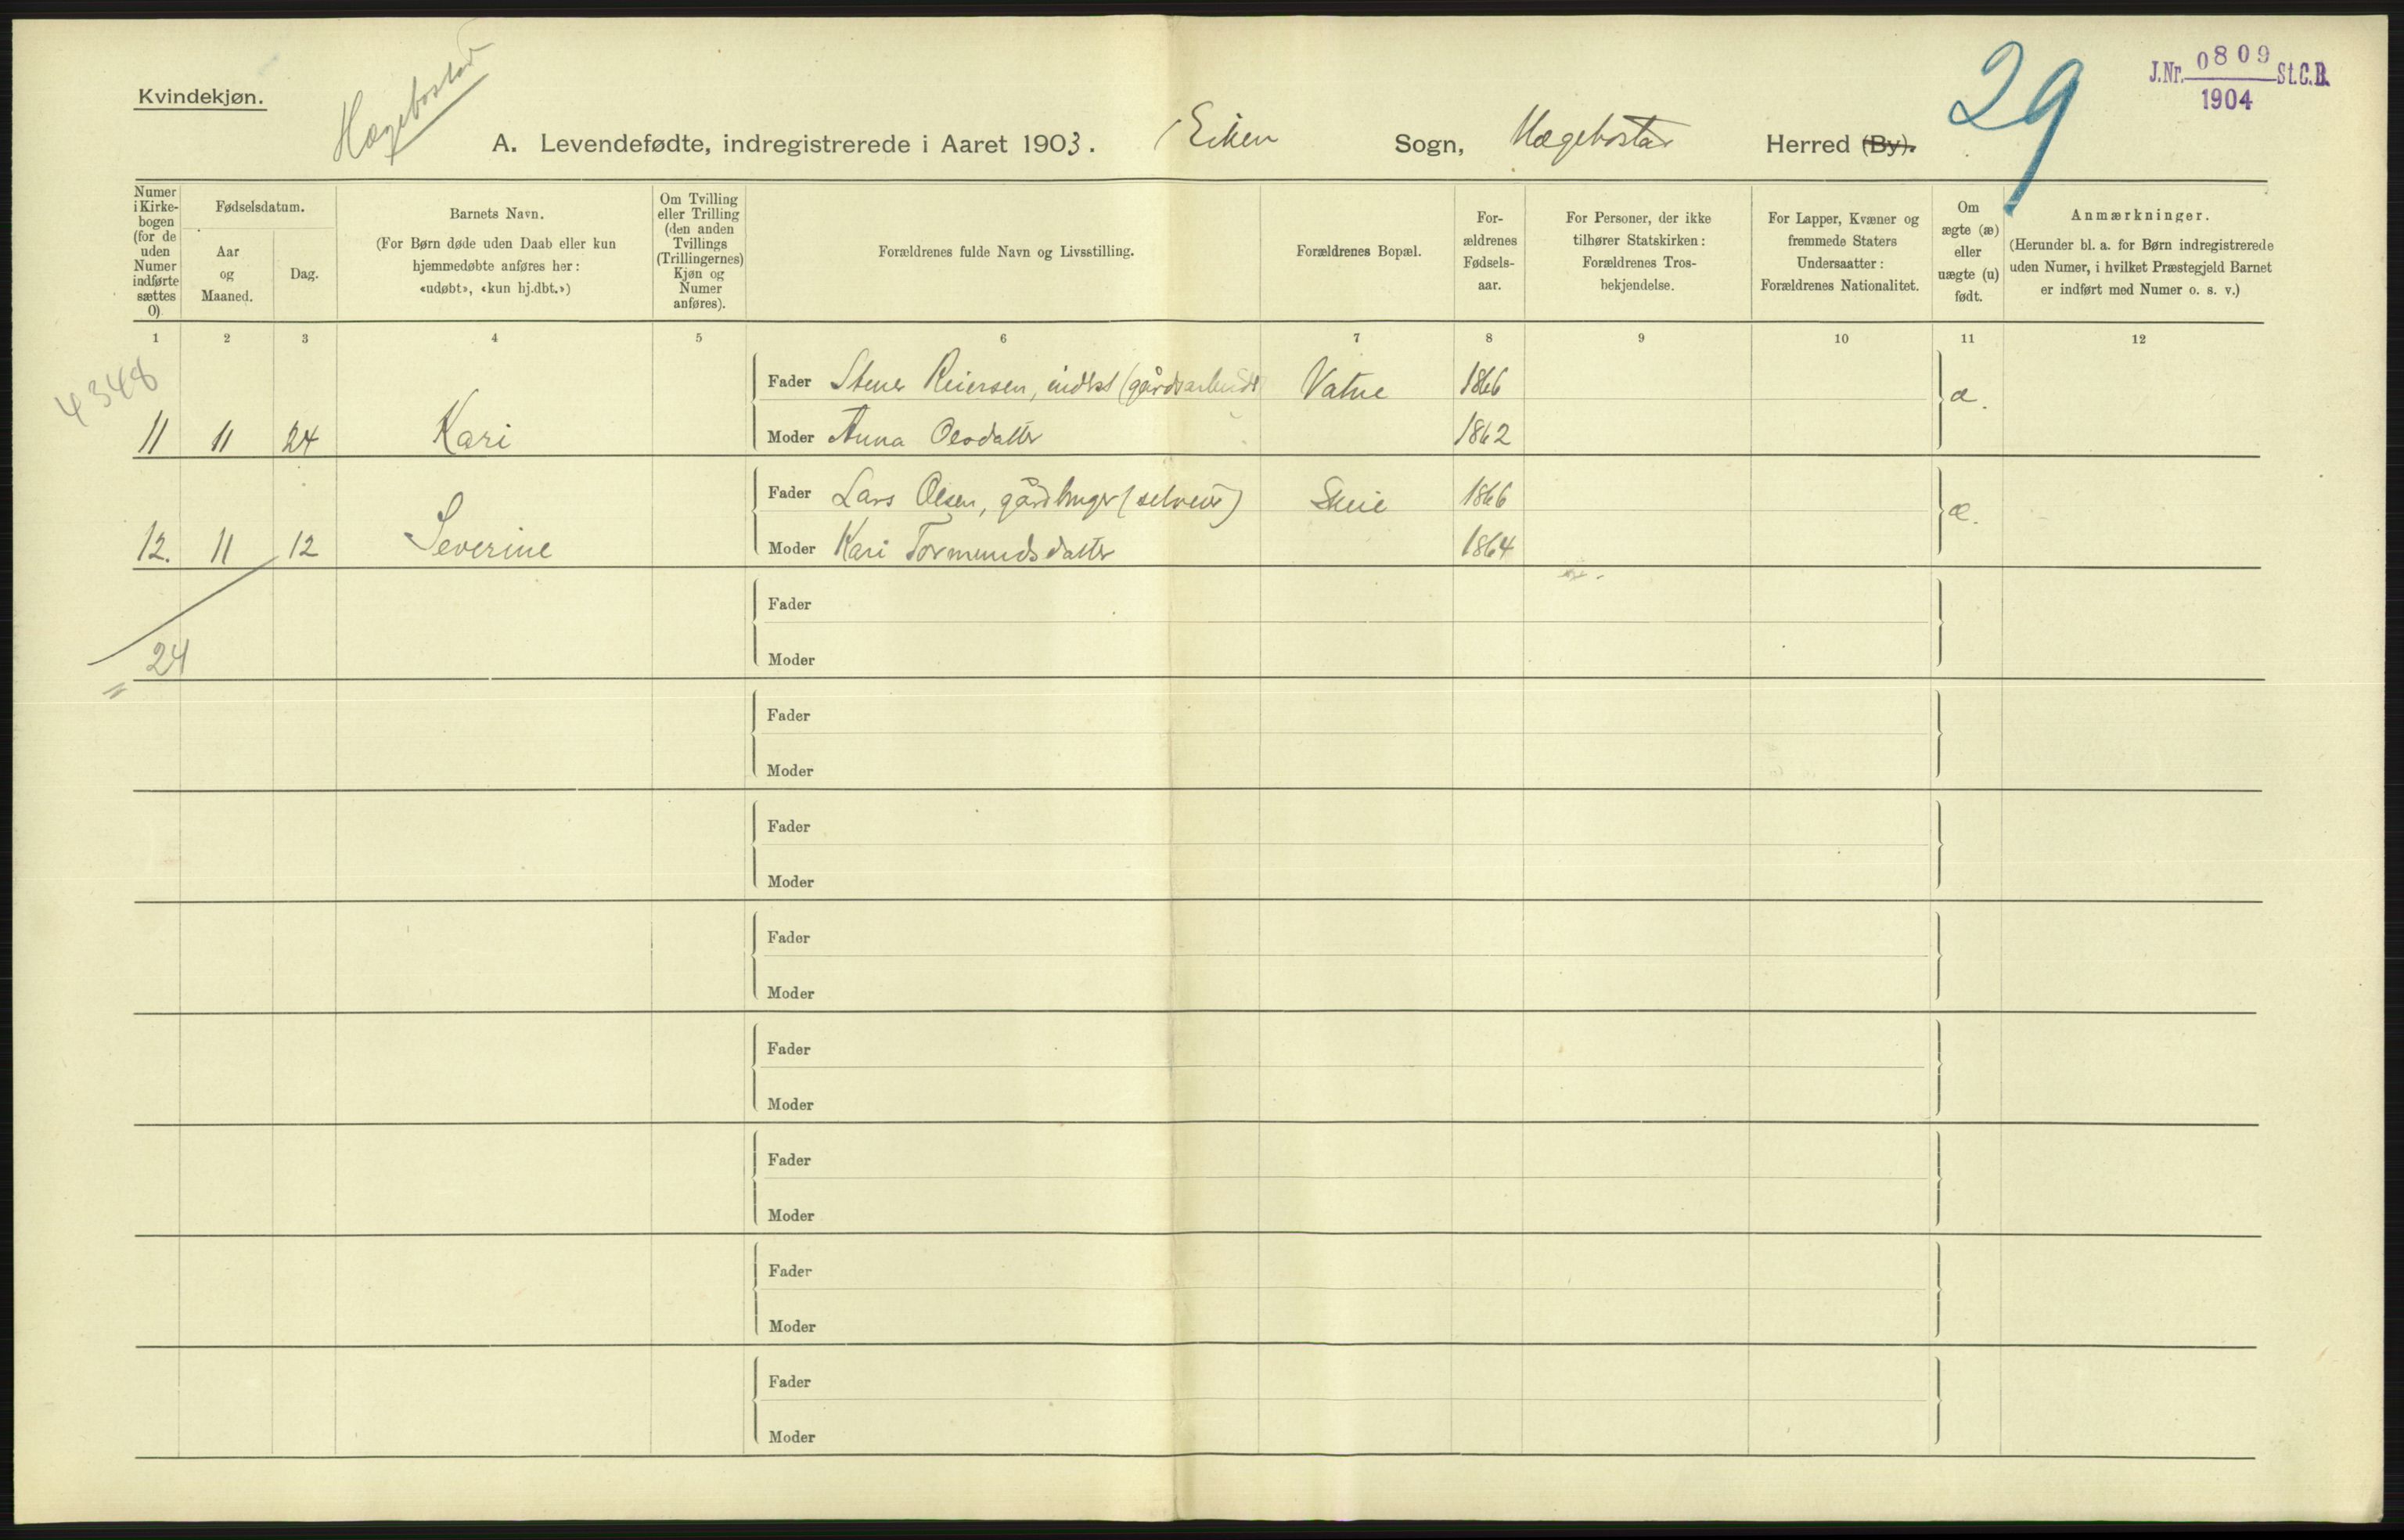 Kvindekjøn.
Hægebostad
29
J.Nr. 0809 St.C.B.
1904
A. Levendefødte, indregistrerede i Aaret 1903. Eiken Sogn, Hægebostad Herred (By).
Numer i Kirke-bogen (for de uden Numer indførte sættes 0)
Fødselsdatum.
Aar og Maaned.
Dag.
Barnets Navn.
(For Børn døde uden Daab eller kun
hjemmedøbte anføres her:
«udøbt», «kun hj.dbt.»)
Om Tvilling
eller Trilling
(den anden
Tvillings
(Trillingernes)
Kjøn og
Numer
anføres).
Forældrenes fulde Navn og Livsstilling.
Forældrenes Bopæl.
For-
ældrenes
Fødsels-
aar.
For Personer, der ikke
tilhører Statskirken:
Forældrenes Tros-
bekjendelse.
For Lapper, Kvæner og
fremmede Staters
Undersaatter:
Forældrenes Nationalitet.
Om
ægte (æ)
eller
uægte (u)
født.
Anmærkninger.
(Herunder bl. a. for Børn indregistrerede
uden Numer, i hvilket Præstegjeld Barnet
er indført med Numer o. s. v.)
1 2 3 4 5 6 7 8 9 10 11 12
4348
Fader Stener Reiersen, inderst (gårdsarbeider Vatne 1866 æ.
11 11 24 Kari Moder Anna Olsdatter 1862
Fader Lars Olsen, gårdbruger (selveier) Skeie 1866 æ.
12. 11 12 Severine Moder Kari Tormundsdatter 1864
Fader
24
Moder
Fader
Moder
Fader
Moder
Fader
Moder
Fader
Moder
Fader
Moder
Fader
Moder
Fader
Moder